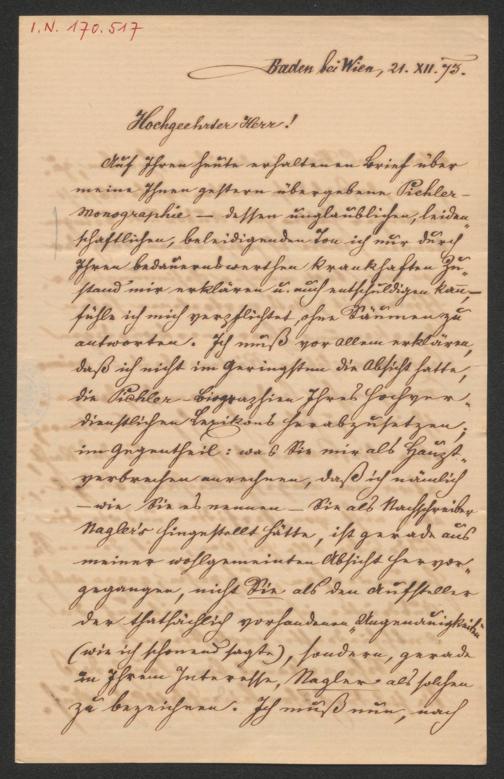 I.N. 170.517
Baden bei Wien, 21. XII. 75.
Hochgeehrter Herr!
Auf Ihren heute erhaltenen Brief über
meine Ihnen gestern übergebene Pichler-
Monographie — dessen unglaublichen, leiden-
schaftlichen, beleidigenden Ton ich nur durch
Ihren bedauernswerthen krankhaften Zu-
stand mir erklären u. auch entschuldigen kann,—
fühle ich mich verpflichtet ohne Säumen zu
antworten. Ich muß vor allem erklären,
daß ich nicht im Geringsten die Absicht hatte,
die Pichler-Biographien Ihres hochver-
dienstlichen Lexikons herabzusetzen;
im Gegentheil: was Sie mir als Haupt-
verbrechen anrechnen, daß ich nämlich
— wie Sie es nennen — Sie als Nachschreiber
Nagler's hingestellt hätte, ist gerade aus
meiner wohlgemeinten Absicht hervor-
gegangen, nicht Sie als den Aufsteller
der thatsächlich vorhandenen „Ungenauigkeiten"
(wie ich schonend sagte), sondern, gerade
in Ihrem Interesse, Nagler als solchen
zu bezeichnen. Ich muß nun, nach